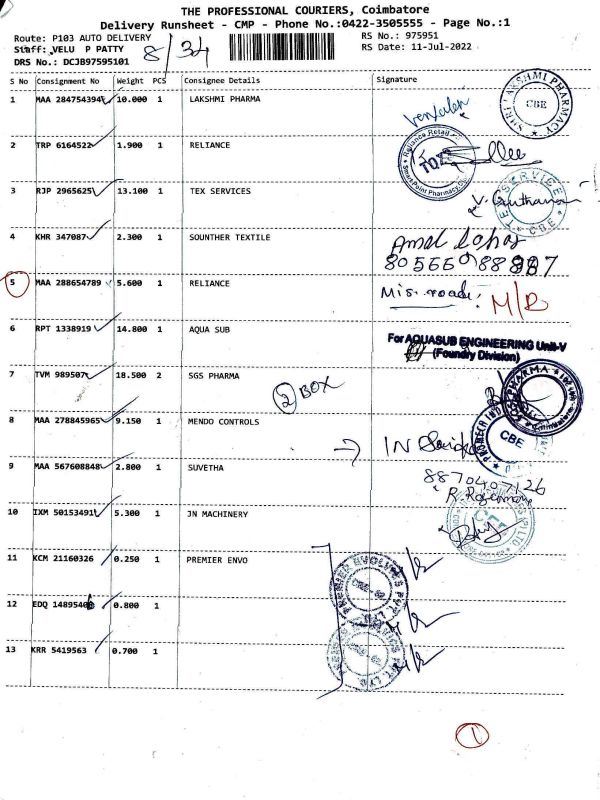 THE PROFESSIONAL COURIERS, Coimbatore
Delivery Runsheet - CMP - Phone No.:0422-3505555 - Page No.:1
Route: P103 AUTO DELIVERY
RS No.: 975951
Staff: VELU P PATTY
8/34
RS Date: 11-Jul-2022
DRS No.: DCJB97595101
S No Consignment No Weight PCS Consignee Details Signature
1 MAA 284754394 10.000 1 LAKSHMI PHARMA
SHRI LAKSHMI PHARMACY CBE
2 TRP 6164522 1.900 1 RELIANCE
Reliance Retail
3 RJP 2965625 13.100 1 TEX SERVICES
TEX SERVICE CBE
4 KHR 347087 2.300 1 SOUNTHER TEXTILE
5 MAA 288654789 5.600 1 RELIANCE
M/R
6 RPT 1338919 14.800 1 AQUA SUB
For AQUASUB ENGINEERING Unit-V
(Foundry Division)
7 TVM 989507 18.500 2 SGS PHARMA
2 BOX
8 MAA 278845965 9.150 1 MENDO CONTROLS
CBE
9 MAA 567608848 2.800 1 SUVETHA
8870407126
10 IXM 50153491 5.300 1 JN MACHINERY
11 KCM 21160326 0.250 1 PREMIER ENVO
PREMIER EVOLVICS PVT. LTD
12 EDQ 1489540 0.800 1
13 KRR 5419563 0.700 1
PREMIER EVOLVICS PVT. LTD
1